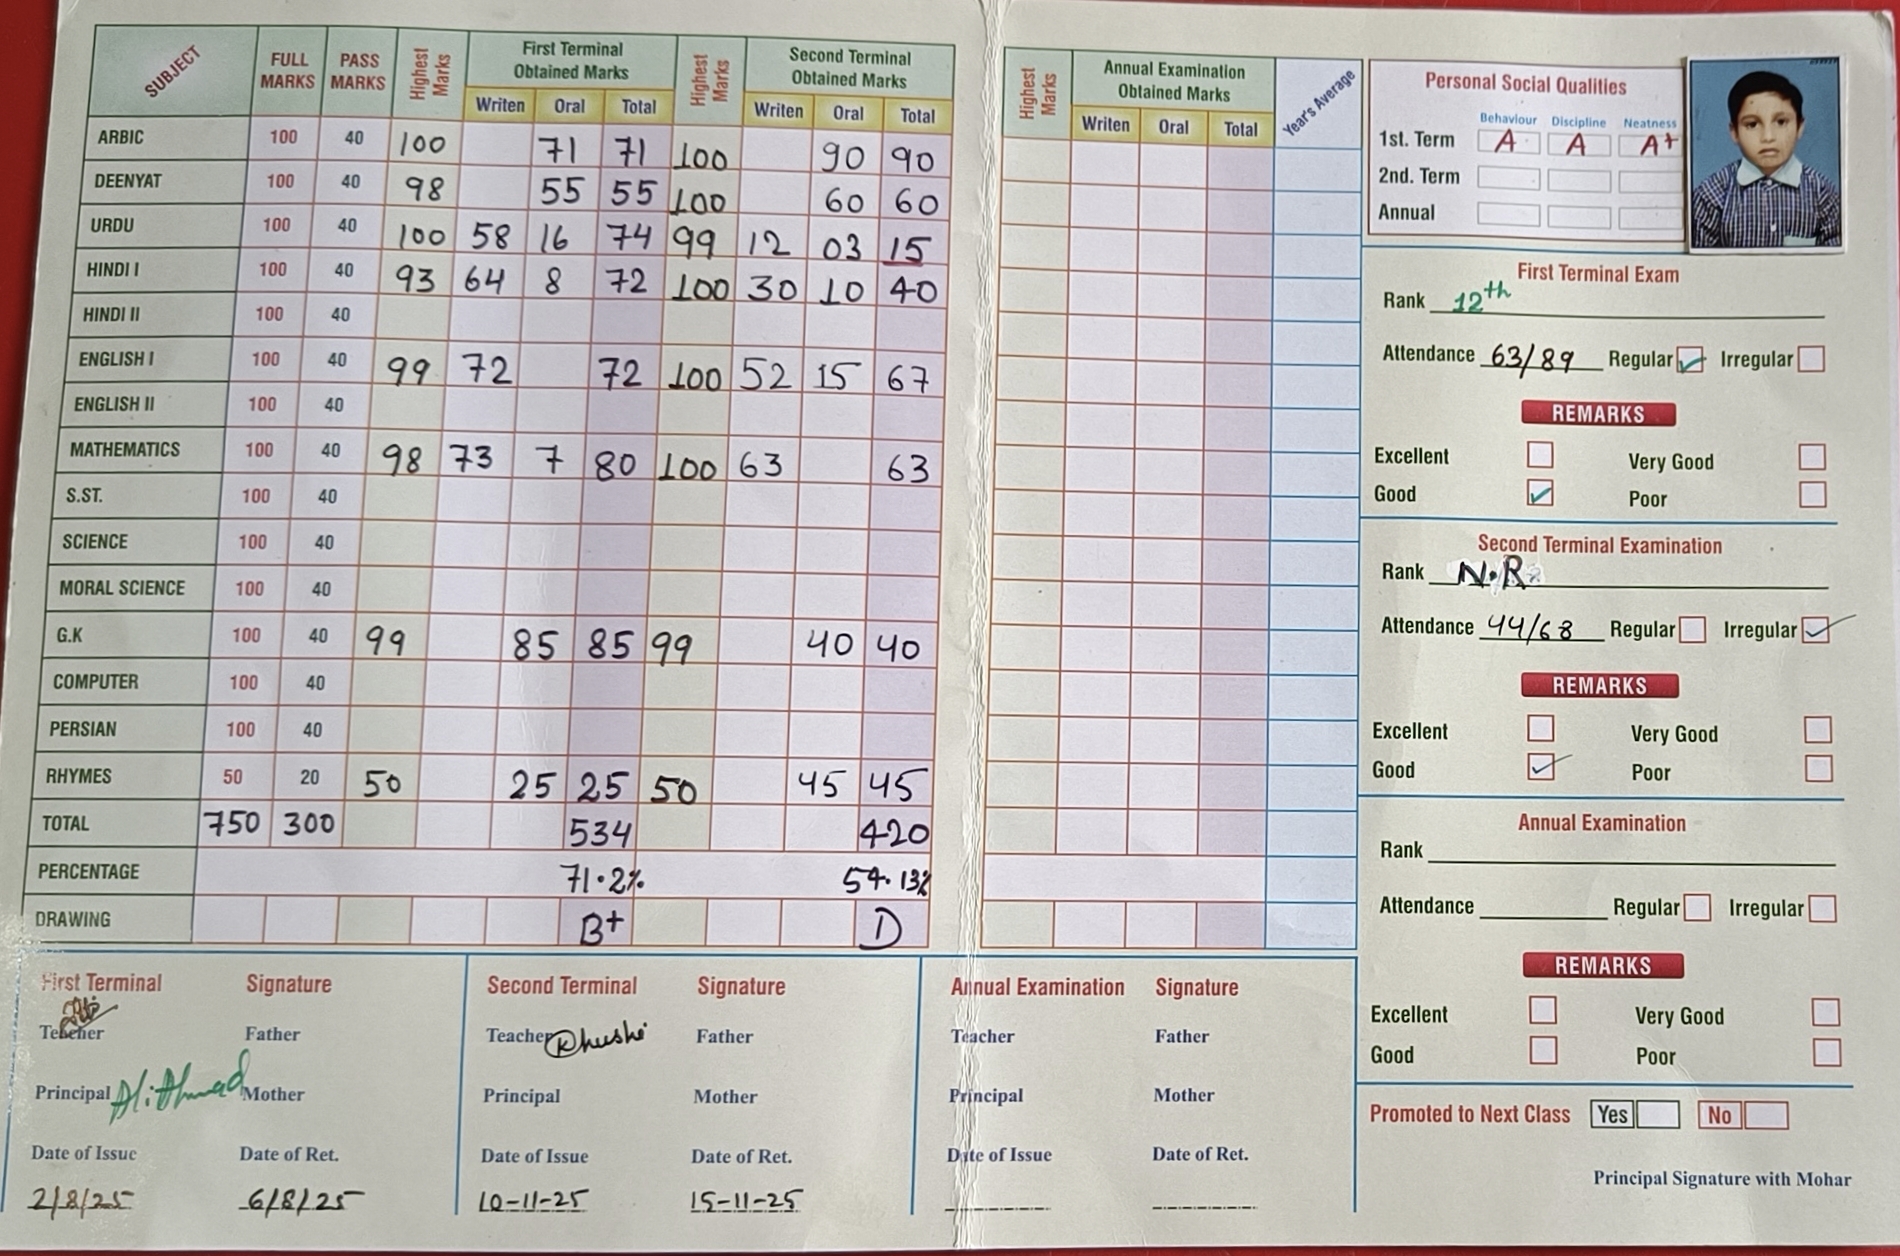 SUBJECT FULL MARKS PASS MARKS Highest Marks First Terminal Obtained Marks Highest Marks Second Terminal Obtained Marks Highest Marks Annual Examination Obtained Marks Year's Average
Writen Oral Total Writen Oral Total Writen Oral Total
ARBIC 100 40 100 71 71 100 90 90
DEENYAT 100 40 98 55 55 100 60 60
URDU 100 40 100 58 16 74 99 12 03 15
HINDI I 100 40 93 64 8 72 100 30 10 40
HINDI II 100 40
ENGLISH I 100 40 99 72 72 100 52 15 67
ENGLISH II 100 40
MATHEMATICS 100 40 98 73 7 80 100 63 63
S.ST. 100 40
SCIENCE 100 40
MORAL SCIENCE 100 40
G.K 100 40 99 85 85 99 40 40
COMPUTER 100 40
PERSIAN 100 40
RHYMES 50 20 50 25 25 50 45 45
TOTAL 750 300 534 420
PERCENTAGE 71.2% 54.13%
DRAWING B+ D
Personal Social Qualities
Behaviour Discipline Neatness
1st. Term A A A+
2nd. Term
Annual
First Terminal Exam
Rank 12th
Attendance 63/89 Regular Irregular
REMARKS
Excellent Very Good
Good Poor
Second Terminal Examination
Rank N.R.
Attendance 44/68 Regular Irregular
REMARKS
Excellent Very Good
Good Poor
Annual Examination
Rank
Attendance Regular Irregular
REMARKS
Excellent Very Good
Good Poor
Promoted to Next Class Yes No
Principal Signature with Mohar
First Terminal Signature
Teacher Father
Principal Ali Ahmad Mother
Date of Issue Date of Ret.
2/8/25 6/8/25
Second Terminal Signature
Teacher Khushi Father
Principal Mother
Date of Issue Date of Ret.
10-11-25 15-11-25
Annual Examination Signature
Teacher Father
Principal Mother
Date of Issue Date of Ret.